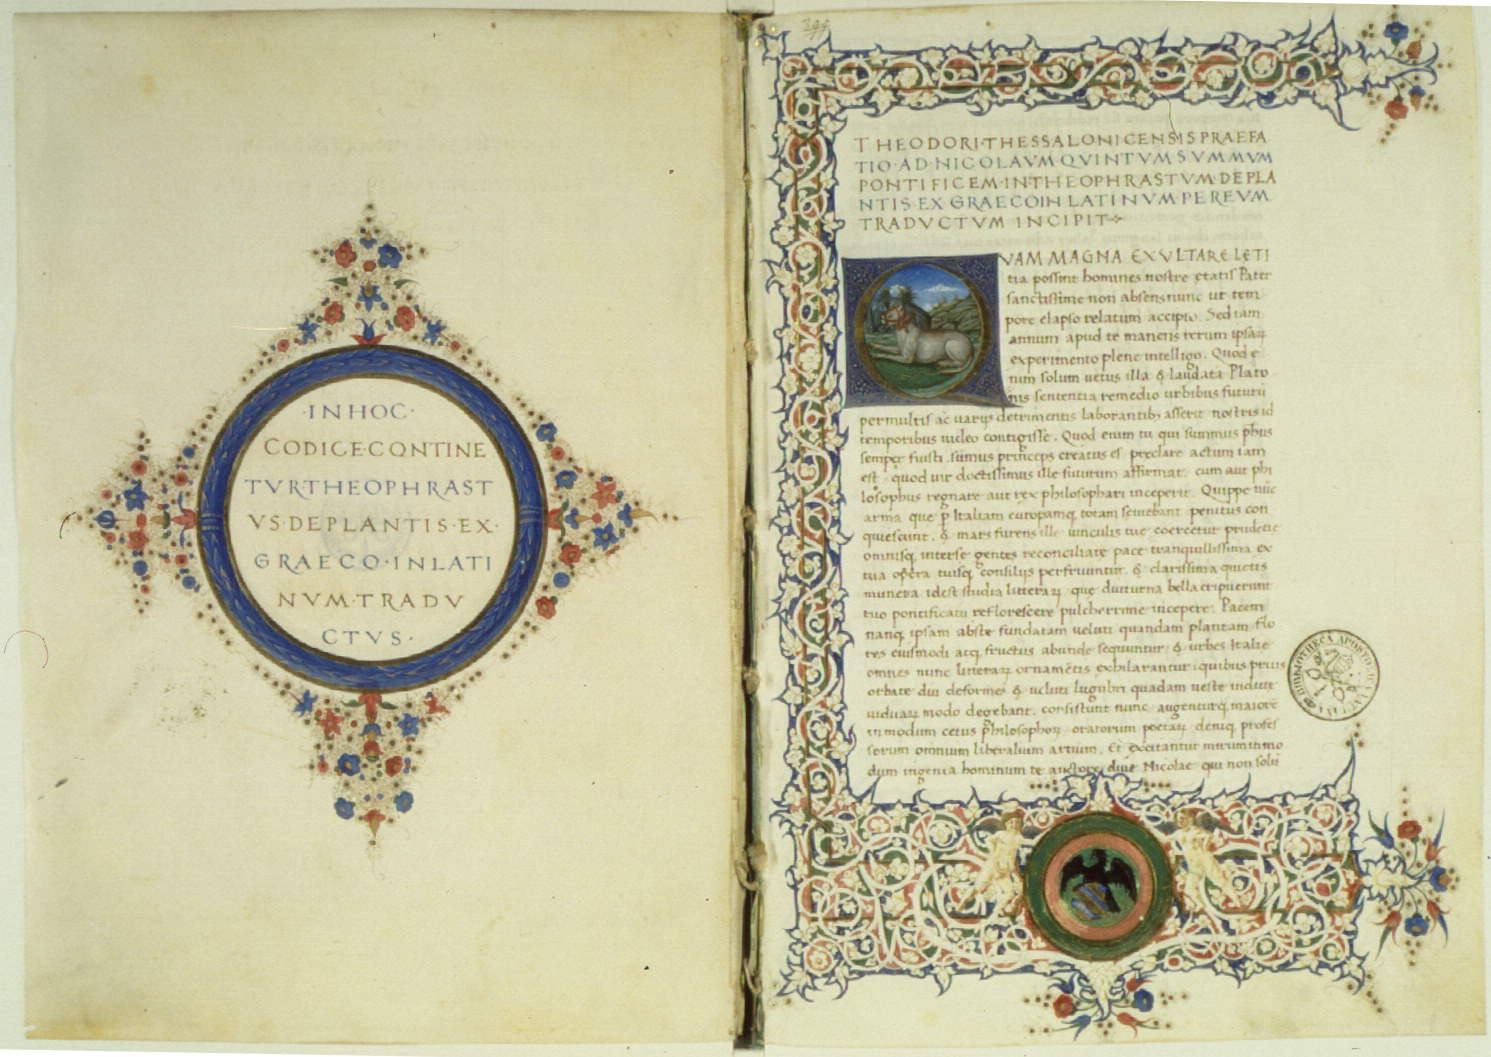 ·INHOC·
CODICE·CONTINE
TVRTHEOPHRAST
VS·DEPLANTIS·EX·
GRAECO·INLATI
NVM·TRADV
CTVS·
399
THEODORI·THESSALONICENSIS PRAEFA
TIO·AD·NICOLAVM QVINTVM SVMMVM
PONTIFICEM·IN·THEOPHRASTVM·DE PLA
NTIS·EX GRAECO IN LATINVM·PER EVM
TRADVCTVM INCIPIT
QVAM MAGNA EXVLTARE LETI
tia possint homines nostre etatis Pater
sanctissime non absens nunc ut tem
pore elapso relatum accipio. Sed iam
annum apud te manens rerum ipsaꝝ
experimento plene intelligo. Quod e
nim solum uetus illa & laudata Plato
nis sententia remedio urbibus futurū
permultis ac uarijs detrimentis laborantibꝫ asserit nostris id
temporibus uideo contigisse. Quod enim tu qui summus phūs
semper fuisti summus princeps creatus es preclare actum iam
est. quod uir doctissimus ille futurum affirmat. cum aut phi
losophus regnare aut rex philosophari inceperit. Quippe nūc
arma que ꝑ Italiam europamqꝫ totam seuiebant penitus con
quiescunt. & mars furens ille uinculis tue coercetur prudētie
omnisqꝫ inter se gentes reconciliate pace tranquillissima ex
tua opera tuisqꝫ consilijs perfruuntur. & clarissima quietis
munera idest studia litteraꝝ que diuturna bella eripuerunt
tuo pontificatu reflorescere pulcherrime incepere. Pacem
nanqꝫ ipsam abste fundatam ueluti quandam plantam flo
res eiusmodi atqꝫ fructus abunde sequuntur. & urbes Italie
omnes nunc litteraꝝ ornamētis exhilarantur quibus prius
orbate diu deformes & ueluti lugubri quadam ueste indute
uiduaꝝ modo degebant. consistunt nunc augenturqꝫ maiorē
in modum cetus philosophoꝝ oratorum poetaꝝ deniqꝫ profes
sorum omnium liberalium artium. Et excitantur mirum in mo
dum ingenia hominum te auctore diue Nicolae qui non solū
BIBLIOTHECA APOSTOLICA VATICANA